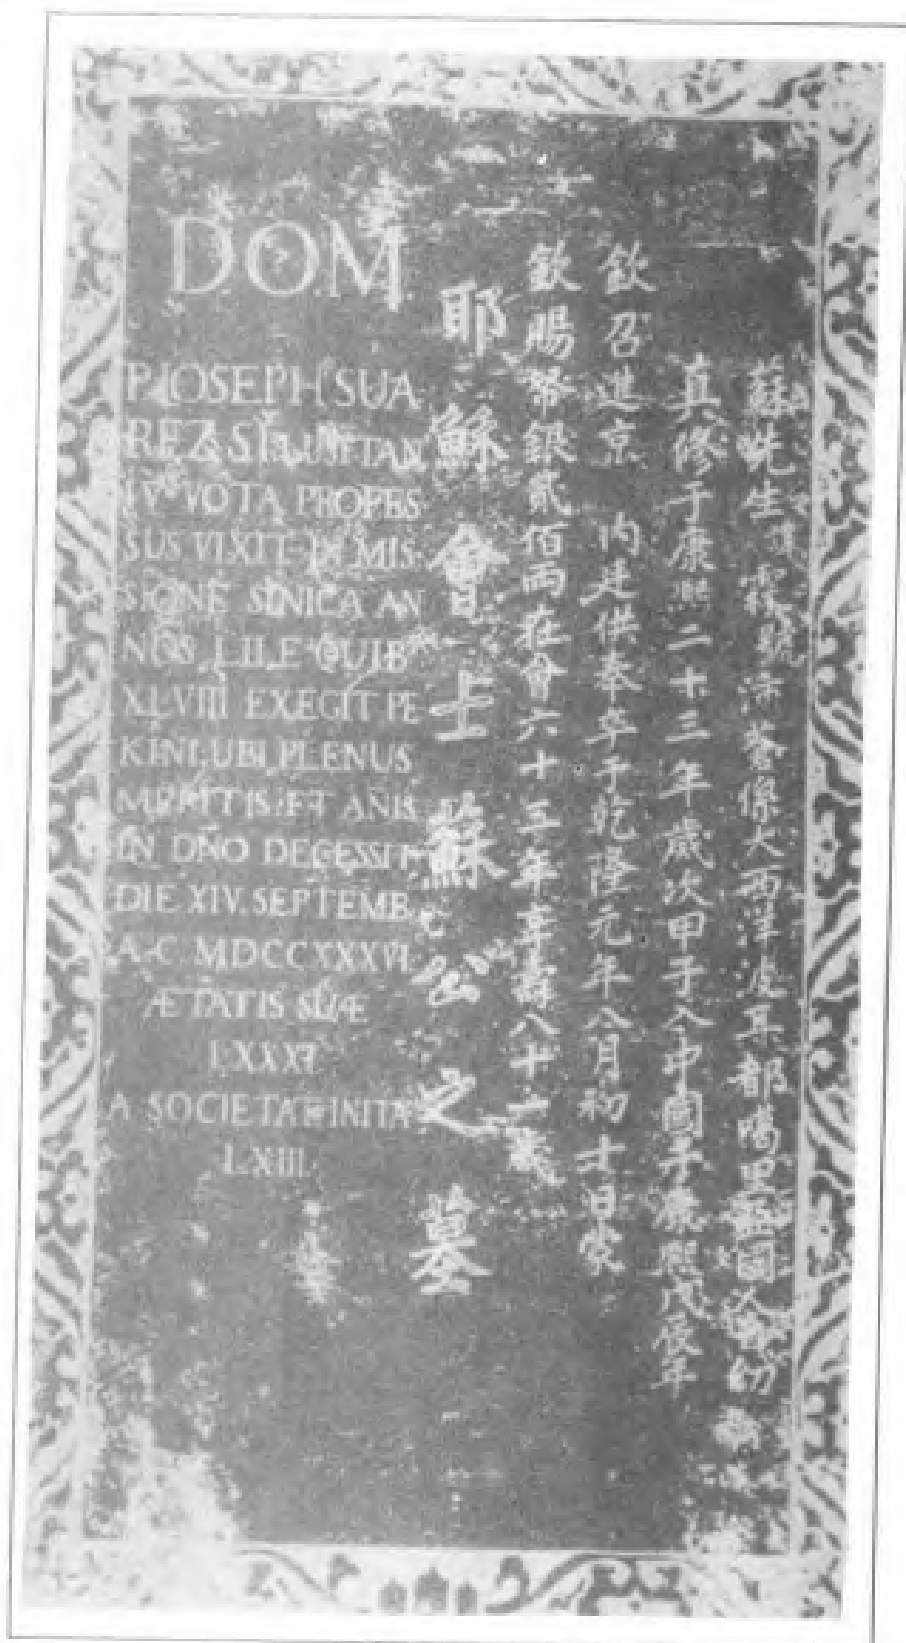 DOM
P. IOSEPH SUA
REZ SI LUSITAN
IV VOTA PROFES
SUS VIXIT IN MIS
SIONE SINICA AN
NOS LII E QUIB
XLVIII EXEGIT PE
KINI UBI PLENUS
MERITIS ET ANIS
IN DNO DECESSIT
DIE XIV. SEPTEMB.
A.C MDCCXXXVI
ÆTATIS SUÆ
LXXXI
A SOCIETATE INITA
LXIII
耶穌會士蘇公之墓
蘇先生諱霖號沛蒼係大西洋波耳都噶里亞國人自幼
真修于康熙二十三年歲次甲子入中國于康熙戊辰年
欽召進京內廷供奉卒于乾隆元年八月初十日蒙
欽賜帑銀貳佰兩在會六十三年享壽八十一歲